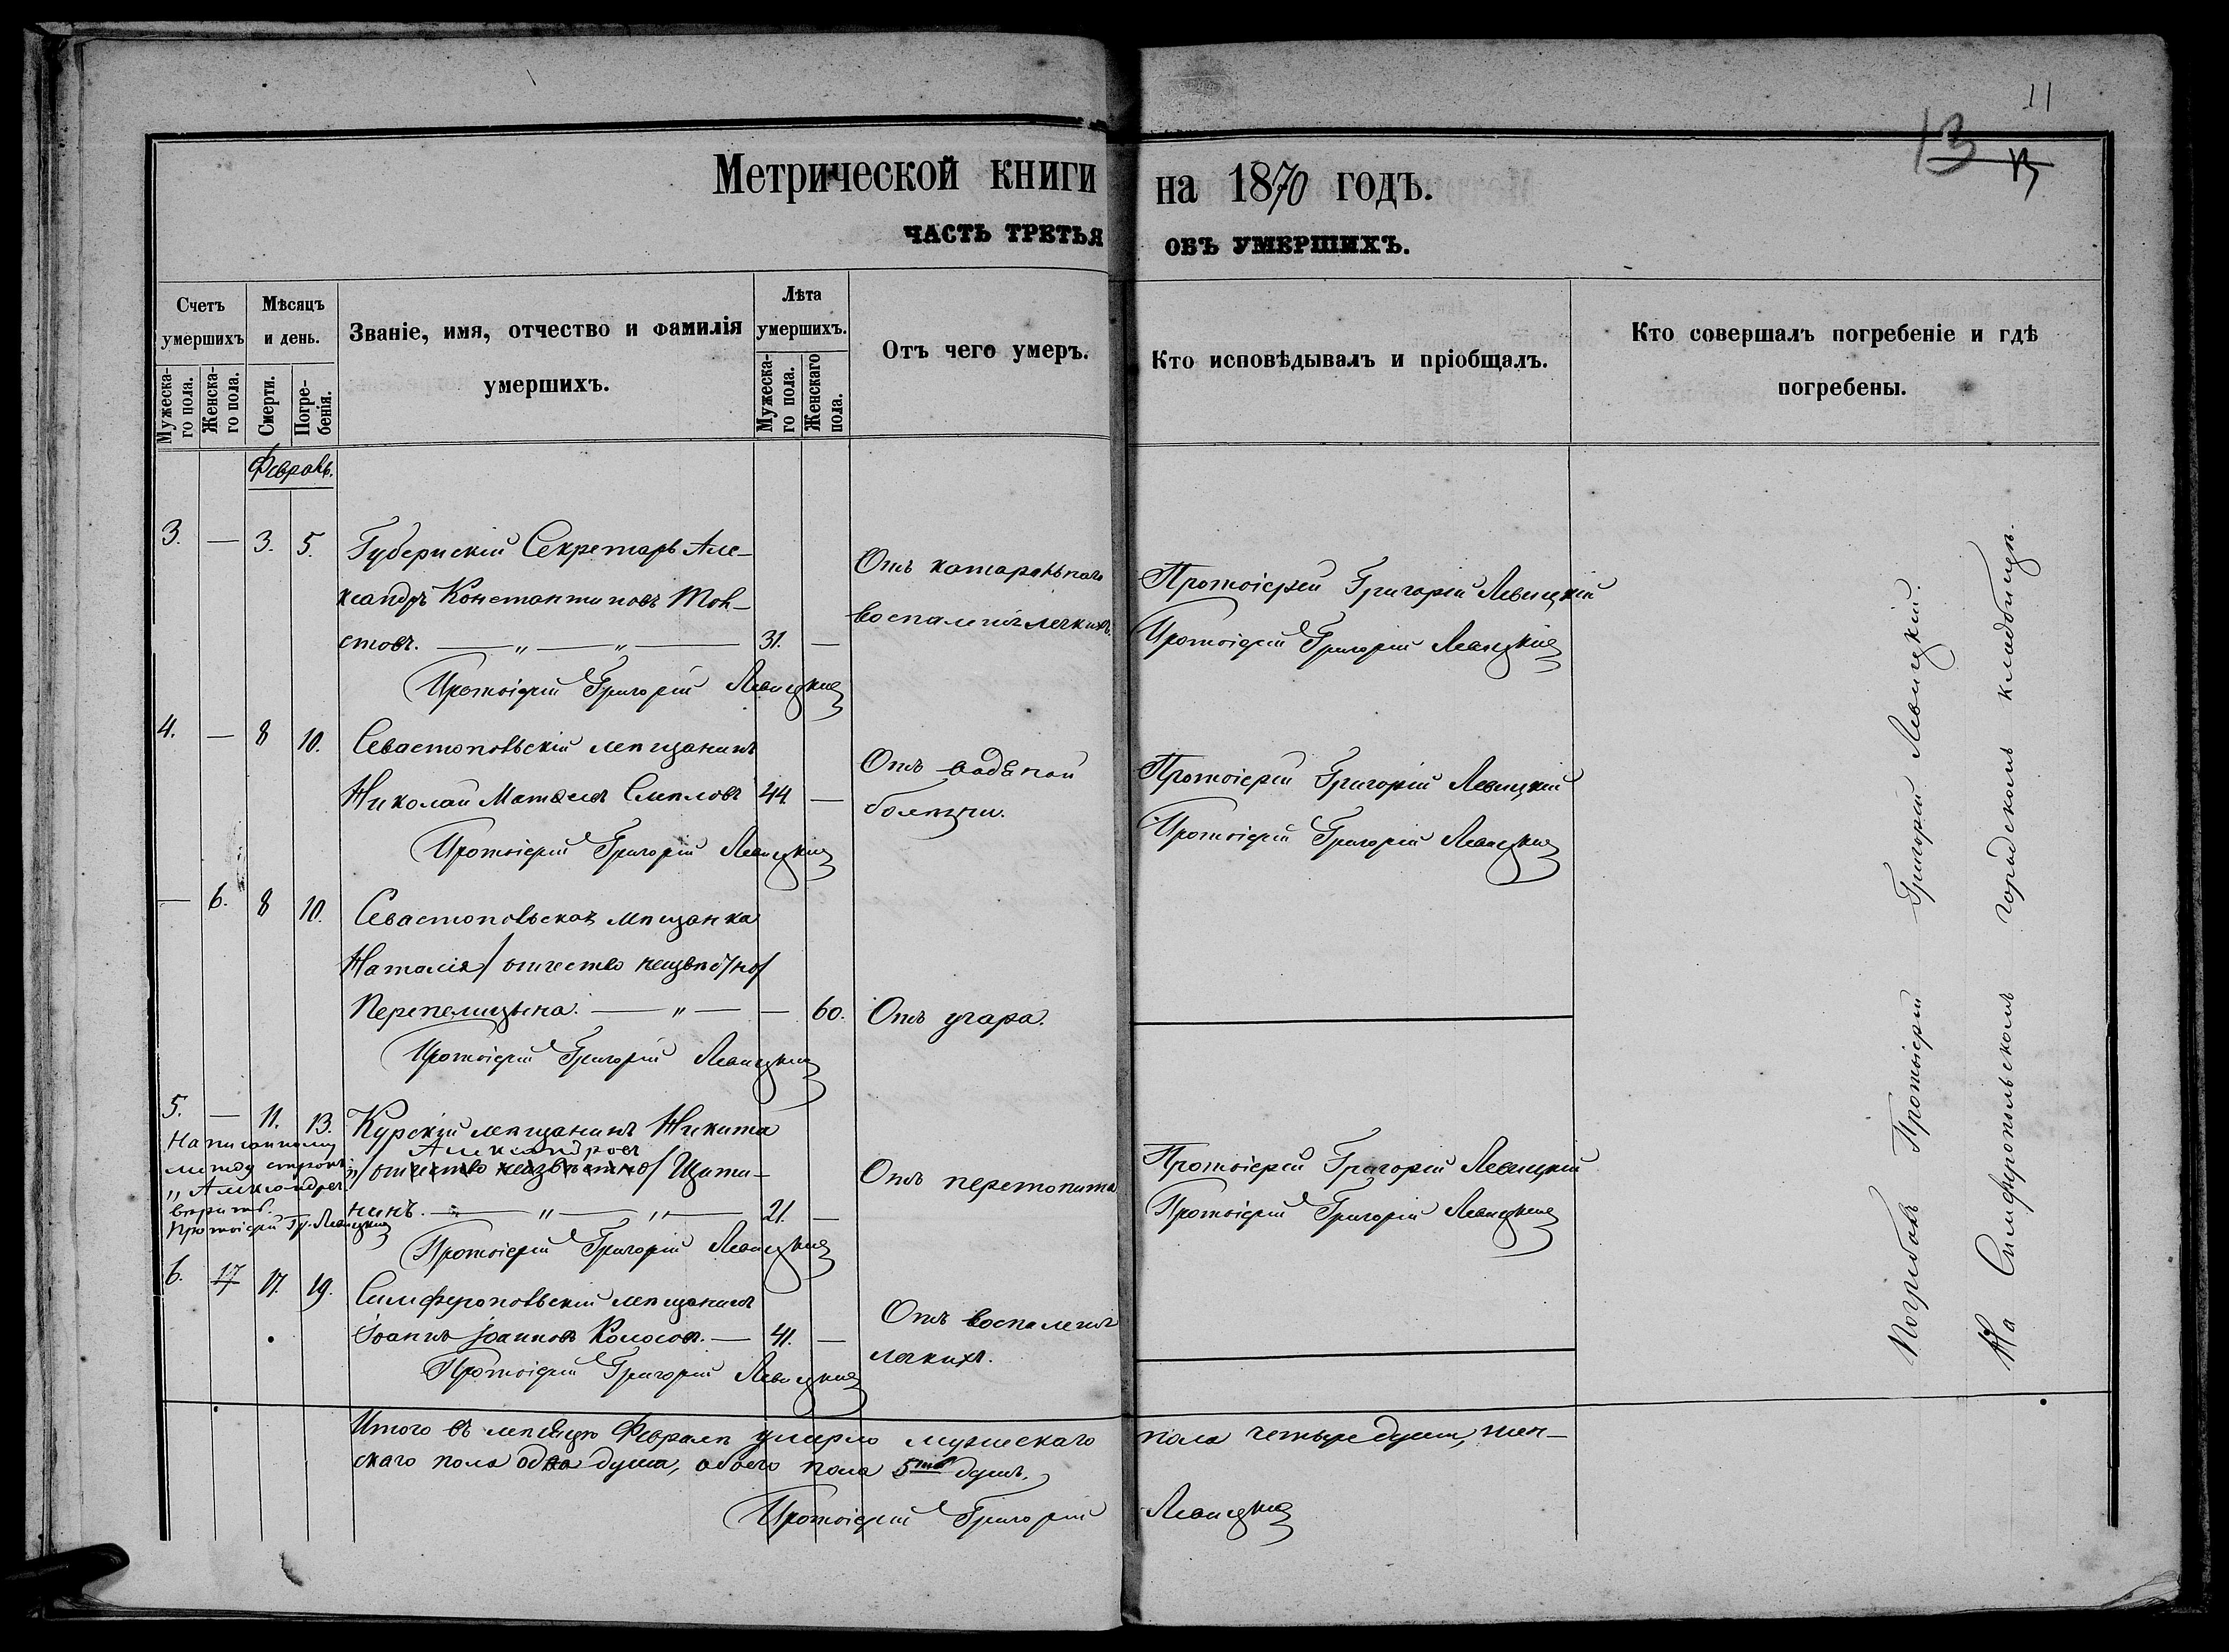 11
13
13
Метрической книги на 1870 годъ.
ЧАСТЬ ТРЕТЬЯ ОБЪ УМЕРШИХЪ.
Счетъ умершихъ
Мужеска-го пола.
Женска-го пола.
Мѣсяцъ и день.
Смерти.
Погре-бенія.
Званіе, имя, отчество и фамилія
умершихъ.
Лѣта умершихъ.
Мужеска-го пола.
Женскаго пола.
Отъ чего умеръ.
Кто исповѣдывалъ и пріобщалъ.
Кто совершалъ погребеніе и гдѣ
погребены.
Февраль.
3. — 3. 5. Губернскій Секретарь Але-
ксандръ Константиновъ Тол-
стовъ. — „ — „ — 31. —
Отъ катаральнаго
воспаленія легкихъ.
Протоіерей Григорій Левицкій
Протоіерей Григорій Левицкій
Протоіерей Григорій Левицкій
4. — 8 10. Севастопольскій мѣщанинъ
Николай Матвеевъ 44 —
Отъ водяной
болѣзни.
Протоіерей Григорій Левицкій
Протоіерей Григорій Левицкій
Протоіерей Григорій Левицкій
— 6. 8 10. Севастопольская мѣщанка
Наталія /отчество неизвѣстно/
Перепелицына. — „ — — 60. Отъ угара.
Протоіерей Григорій Левицкій
5. — 11. 13. Курскій мѣщанинъ Никита
Александровъ
/отчество неизвѣстно/ Щети-
нинъ. — „ — „ — 21. —
Написанному
между строкъ
„Александров
вѣрить.
Протоіерей Гр. Левицкій
Отъ перепита
Протоіерей Григорій Левицкій
Протоіерей Григорій Левицкій
Протоіерей Григорій Левицкій
6. 17 17. 19. Симферопольскій мѣщанинъ
Іоаннъ Іоанновъ Колосовъ. — 41. —
Отъ воспаленія
легкихъ.
Протоіерей Григорій Левицкій
Погребалъ Протоіерей Григорій Левицкій.
На Симферопольскомъ городскомъ кладбищѣ.
Итого въ мѣсяцѣ Февралѣ умерло мужескаго пола четыре души, жен-
скаго пола одна душа, обоего пола 5ть душъ.
Протоіерей Григорій Левицкій